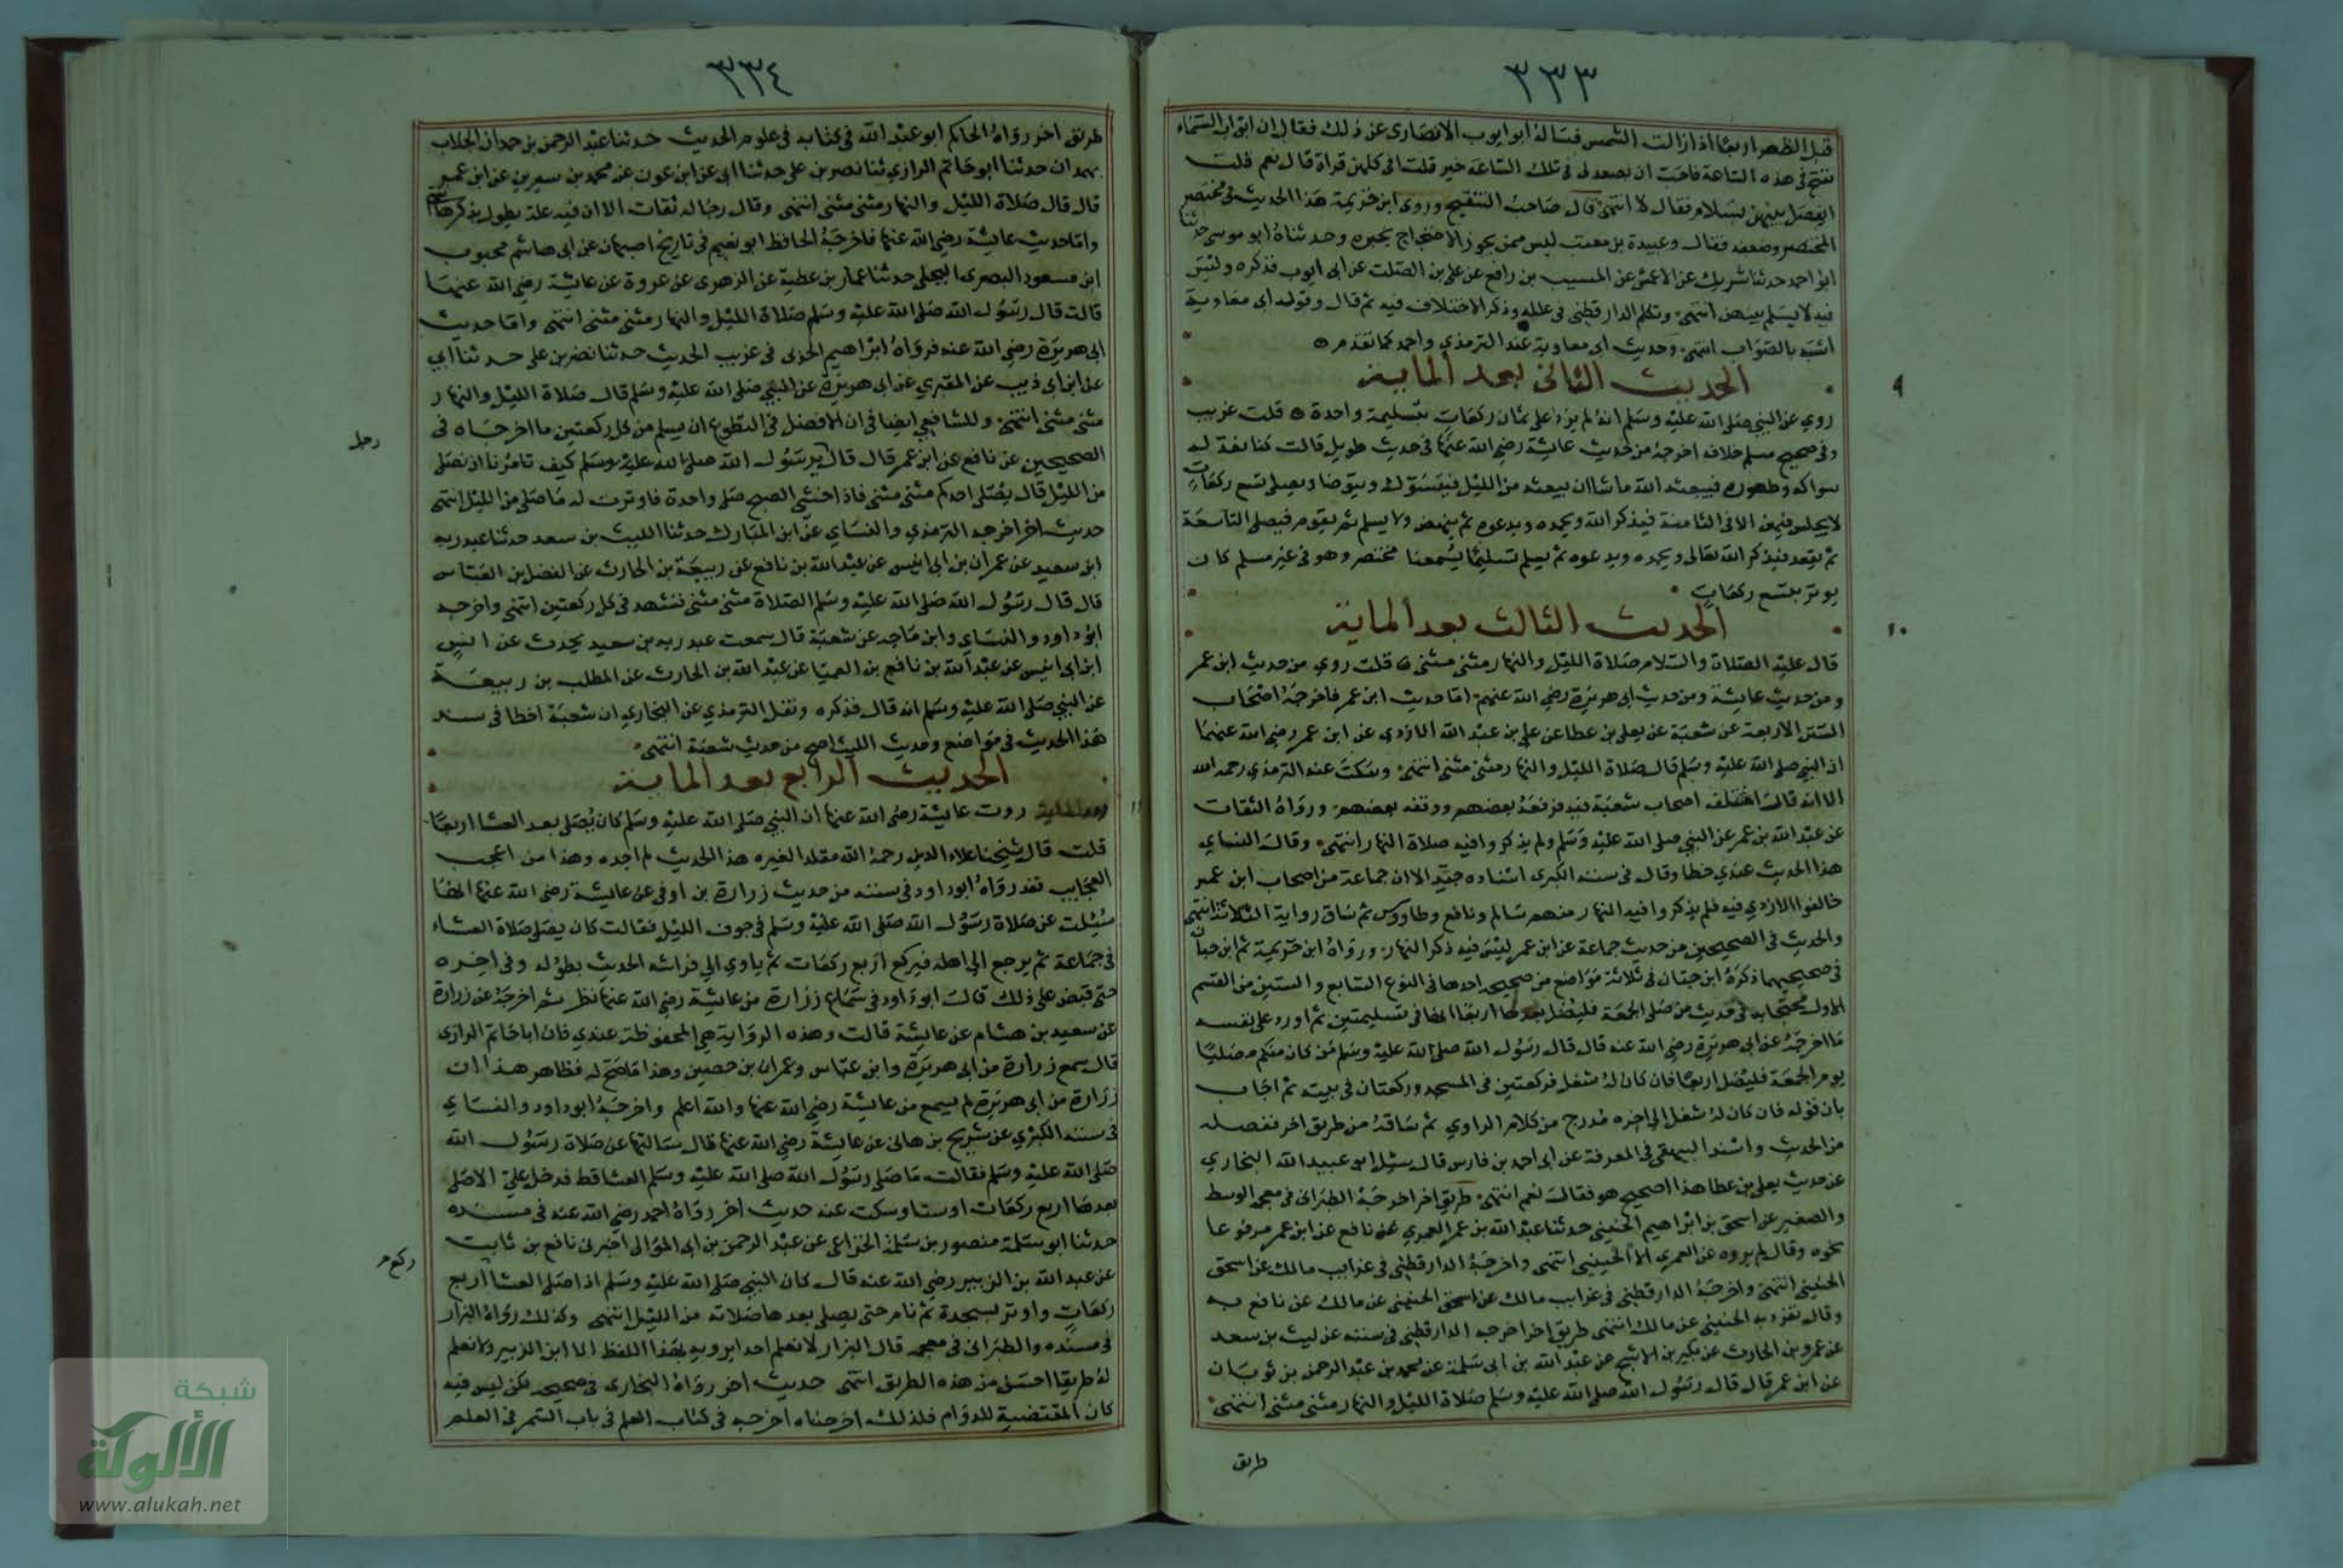 ٣٣٣
قبل الظهر اربعا اذا زالت الشمس فسأله ابو ايوب الانصاري عن ذلك فقال ان ابواب السماء
تفتح في هذه الساعة فاحب ان يصعد لي في تلك الساعة خير قلت افي كلهن قراة قال نعم قلت
ايفصل بينهن بسلام فقال لا انتهى قال صاحب التنقيح وروى ابن خزيمة هذا الحديث في مختصر
المختصر وضعفه فقال وعبيدة بن معتب ليس ممن يجوز الاحتجاج بخبره وحدثناه ابو موسى حدثنا
ابو احمد حدثنا شريك عن الاعمش عن المسيب بن رافع عن علي بن الصلت عن ابي ايوب فذكره وليس
فيه لا يسلم بينهن انتهى وتكلم الدارقطني في علله وذكر الاختلاف فيه ثم قال وقول ابي معاوية
اشبه بالصواب انتهى وحديث ابي معاوية عند الترمذي واحمد كما تقدم
الحديث الثاني بعد الماية
٩
روي عن النبي صلى الله عليه وسلم انه لم يزد على ثمان ركعات بتسليمة واحدة قلت غريب
وفي صحيح مسلم خلافه اخرجه من حديث عايشة رضي الله عنها في حديث طويل قالت كنا نعد له
سواكه وطهوره فيبعثه الله ما شا ان يبعثه من الليل فيتسوك ويتوضا ويصلي تسع ركعات
لا يجلس فيهن الا في الثامنة فيذكر الله ويحمده ويدعوه ثم ينهض ولا يسلم ثم يقوم فيصلي التاسعة
ثم يقعد فيذكر الله تعالى ويحمده ويدعوه ثم يسلم تسليما يسمعنا مختصر وهو في غير مسلم كان
يوتر بتسع ركعات
الحديث الثالث بعد الماية
١٠
قال عليه الصلاة والسلام صلاة الليل والنهار مثنى مثنى قلت روي من حديث ابن عمر
ومن حديث عايشة ومن حديث ابي هريرة رضي الله عنهم اما حديث ابن عمر فاخرجه اصحاب
السنن الاربعة عن شعبة عن يعلى بن عطا عن علي بن عبد الله الازدي عن ابن عمر رضي الله عنهما
ان النبي صلى الله عليه وسلم قال صلاة الليل والنهار مثنى مثنى انتهى وسكت عنه الترمذي رحمه الله
الا انه قال اختلف اصحاب شعبة فيه فرفعه بعضهم ووقفه بعضهم ورواه الثقات
عن عبد الله بن عمر عن النبي صلى الله عليه وسلم ولم يذكروا فيه صلاة النهار انتهى وقال النساي
هذا الحديث عندي خطا وقال في سننه الكبرى اسناده جيد الا ان جماعة من اصحاب ابن عمر
خالفوا الازدي فيه فلم يذكروا فيه النهار منهم سالم ونافع وطاووس ثم ساق رواية الثلاثة انتهى
والحديث في الصحيحين من حديث جماعة عن ابن عمر ليس فيه ذكر النهار ورواه ابن خزيمة ثم ابن حبان
في صحيحيهما ذكره ابن حبان في ثلاثة مواضع من صحيحه احدها في النوع السابع والستين من القسم
الاول محتجا به في حديث من صلى الجمعة فليصل بعدها اربعا انها في تسليمتين ثم اورد على نفسه
ما اخرجه عن ابي هريرة رضي الله عنه قال قال رسول الله صلى الله عليه وسلم من كان منكم مصليا
يوم الجمعة فليصل اربعا فان كان له شغل فركعتين في المسجد وركعتان في بيته ثم اجاب
بان قوله فان كان له شغل الى اخره مدرج من كلام الراوي ثم ساقه من طريق اخر ففصله
من الحديث واسند البيهقي في المعرفة عن ابي احمد بن فارس قال سئل ابو عبيد الله البخاري
عن حديث يعلى بن عطا هذا اصحيح هو فقال نعم انتهى طريق اخر اخرجه الطبراني في معجمه الوسط
والصغير عن اسحق بن ابراهيم الحنيني حدثنا عبد الله بن عمر العمري عن نافع عن ابن عمر مرفوعا
نحوه وقال لم يروه عن العمري الا الحنيني انتهى واخرجه الدارقطني في غرايب مالك عن اسحق
الحنيني انتهى واخرجه الدارقطني في غرايب مالك عن اسحق الحنيني عن مالك عن نافع به
وقال تفرد به الحنيني عن مالك انتهى طريق اخر اخرجه الدارقطني في سننه عن ليث بن سعد
عن عمرو بن الحارث عن بكير بن الاشج عن عبد الله بن ابي سلمة عن محمد بن عبد الرحمن بن ثوبان
عن ابن عمر قال قال رسول الله صلى الله عليه وسلم صلاة الليل والنهار مثنى مثنى انتهى
طريق
٣٣٤
طريق اخر رواه الحاكم ابو عبد الله في كتابه في علوم الحديث حدثنا عبد الرحمن بن حمدان الجلاب
بهمدان حدثنا ابو حاتم الرازي ثنا نصر بن علي حدثنا ابي عن ابن عون عن محمد بن سيرين عن ابن عمر
قال قال صلاة الليل والنهار مثنى مثنى انتهى وقال رجاله ثقات الا ان فيه علة يطول بذكرها
واما حديث عايشة رضي الله عنها فاخرجه الحافظ ابو نعيم في تاريخ اصبهان عن ابي هاشم محبوب
ابن مسعود البصري البجلي حدثنا عمار بن عطية عن الزهري عن عروة عن عايشة رضي الله عنها
قالت قال رسول الله صلى الله عليه وسلم صلاة الليل والنهار مثنى مثنى انتهى واما حديث
ابي هريرة رضي الله عنه فرواه ابراهيم الحزي في غريب الحديث حدثنا نصر بن علي حدثنا ابي
عن ابن ابي ذيب عن المقبري عن ابي هريرة عن النبي صلى الله عليه وسلم قال صلاة الليل والنهار
مثنى مثنى انتهى وللشافعي ايضا في ان الافضل في التطوع ان يسلم من كل ركعتين ما اخرجاه في
رجل
الصحيحين عن نافع عن ابن عمر قال قال يرسول الله صلى الله عليه وسلم كيف تامرنا ان نصلي
من الليل قال يصلي احدكم مثنى مثنى فاذا خشي الصبح صلى واحدة فاوترت له ما صلى من الليل انتهى
حديث اخر اخرجه الترمذي والنساي عن ابن المبارك حدثنا الليث بن سعد حدثنا عبد ربه
ابن سعيد عن عمران بن ابي انيس عن عبد الله بن نافع عن ربيعة بن الحارث عن الفضل بن العباس
قال قال رسول الله صلى الله عليه وسلم الصلاة مثنى مثنى تشهد في كل ركعتين انتهى واخرجه
ابو داود والنساي وابن ماجه عن شعبة قال سمعت عبد ربه بن سعيد يحدث عن انس
ابن ابي انيس عن عبد الله بن نافع بن العميا عن عبد الله بن الحارث عن المطلب بن ربيعة
عن النبي صلى الله عليه وسلم انه قال فذكره ونقل الترمذي عن البخاري ان شعبة اخطا في سند
هذا الحديث في مواضع وحديث الليث اصح من حديث شعبة انتهى
الحديث الرابع بعد الماية
١١
روت عايشة رضي الله عنها ان النبي صلى الله عليه وسلم كان يصلي بعد العشا اربعا
قلت قال شيخنا علاء الدين رحمه الله مقلدا لغيره هذا الحديث لم اجده وهذا من اعجب
العجايب فقد رواه ابو داود في سننه من حديث زرارة بن اوفى عن عايشة رضي الله عنها انها
سئلت عن صلاة رسول الله صلى الله عليه وسلم في جوف الليل فقالت كان يصلي صلاة العشاء
في جماعة ثم يرجع الى اهله فيركع اربع ركعات ثم ياوي الى فراشه الحديث بطوله وفي اخره
حتى قبض على ذلك قال ابو داود في سماع زرارة من عايشة رضي الله عنها نظر ثم اخرجه عن زرارة
عن سعيد بن هشام عن عايشة قالت وهذه الرواية هي المحفوظة عندي فان ابا حاتم الرازي
قال سمع زرارة من ابي هريرة وابن عباس وعمران بن حصين وهذا ما صح له فظاهر هذا ان
زرارة من ابي هريرة لم يسمع من عايشة رضي الله عنها والله اعلم واخرجه ابو داود والنساي
في سننه الكبرى عن شريح بن هانى عن عايشة رضي الله عنها قال سالتها عن صلاة رسول الله
صلى الله عليه وسلم فقالت ما صلى رسول الله صلى الله عليه وسلم العشا قط فدخل علي الا صلى
بعدها اربع ركعات او ستا وسكت عنه حديث اخر رواه احمد رضي الله عنه في مسنده
حدثنا ابو سلمة منصور بن سلمة الخزاعي عن عبد الرحمن بن ابي الموالي اخبرني نافع بن ثابت
ركع م
عن عبد الله بن الزبير رضي الله عنه قال كان النبي صلى الله عليه وسلم اذا صلى العشا اربع
ركعات واوتر بسجدة ثم نام حتى يصلي بعدها صلاته من الليل انتهى وكذلك رواه البزار
في مسنده والطبراني في معجمه قال البزار لا نعلم احدا يرويه بهذا اللفظ الا ابن الزبير ولا نعلم
له طريقا احسن من هذه الطريق انتهى حديث اخر رواه البخاري في صحيحه لكن ليس فيه
كان المقتضية للدوام فلذلك اخرجناه اخرجه في كتاب العلم في باب السمر في العلم
شبكة
الألوكة
www.alukah.net